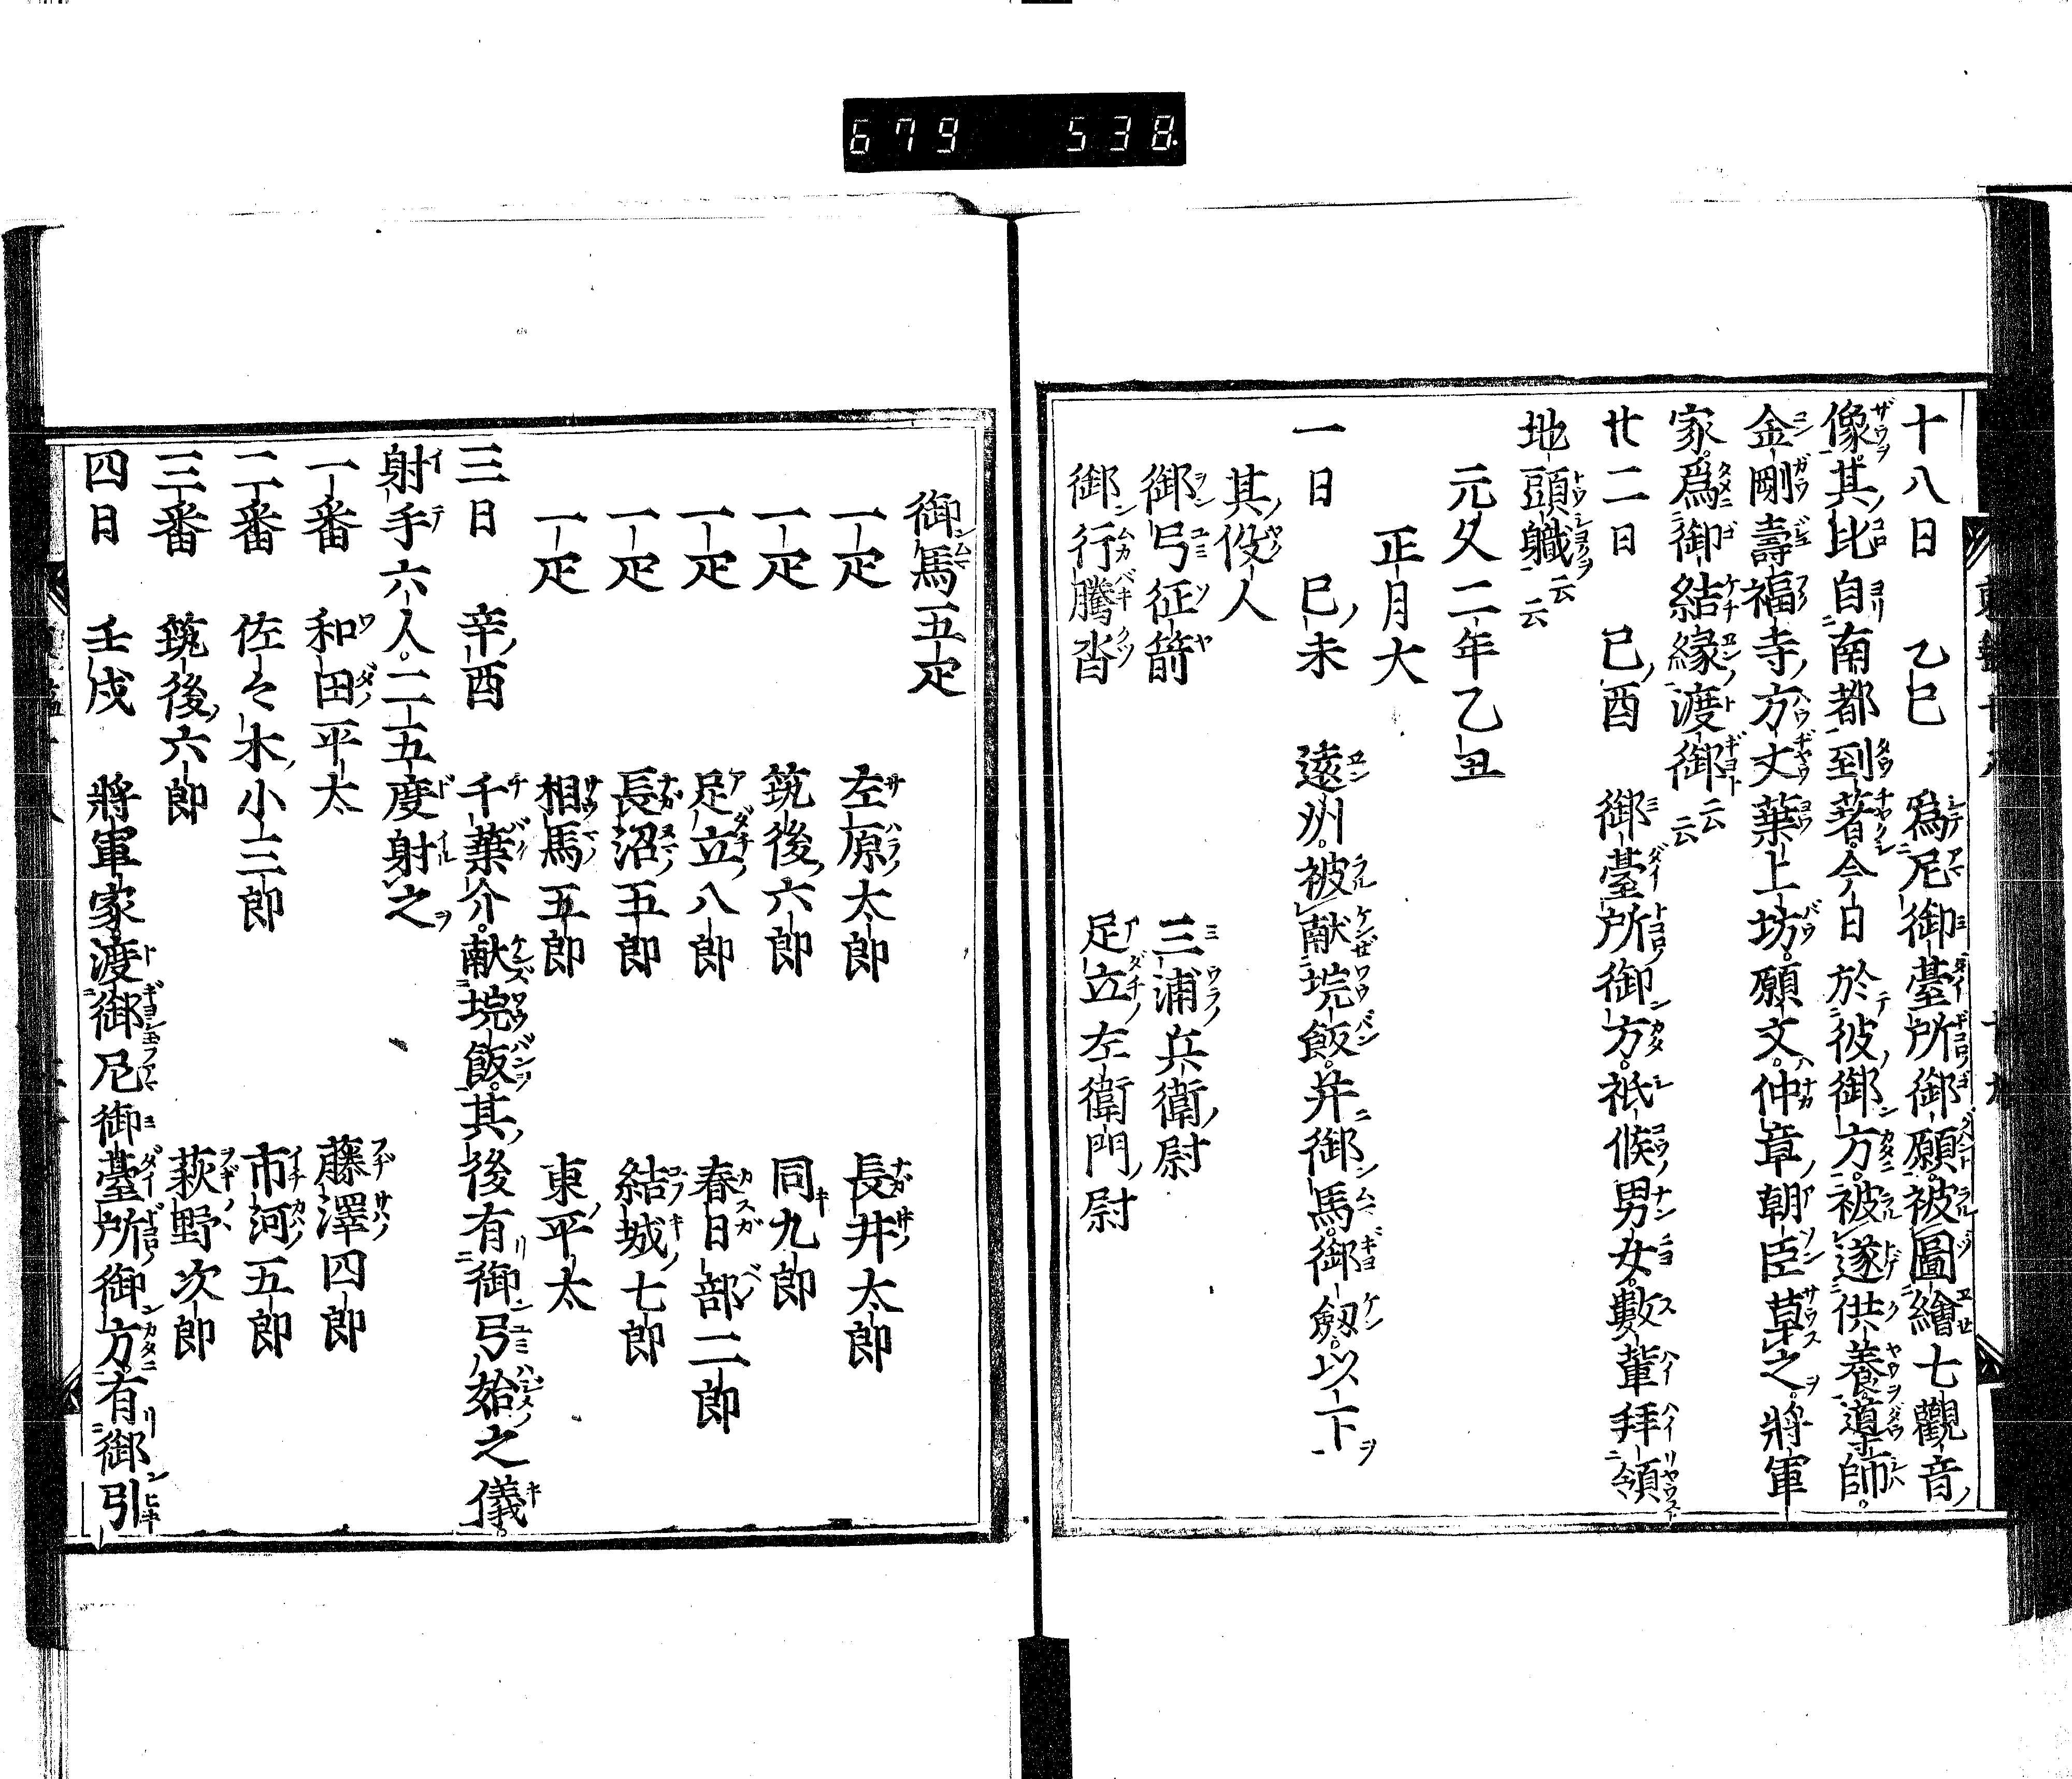 679 538.
十八日 乙巳 爲尼御臺所御願。被圖繪七觀音
像。其比自南都到著。今日於彼御方。被遂供養。導師。
金剛壽福寺方丈葉上坊。願文。仲章朝臣草之。將軍
家。爲御結縁渡御云云
廿二日 己酉 御臺所御方。祇候男女。數輩拜領
地頭職云云
元久二年乙丑
正月大
一日 己未 遠州。被献垸飯。并御馬。御劔。以下
其役人
御弓征箭 三浦兵衛尉
御行騰沓 足立左衛門尉
御馬五疋
一疋 左原太郎 長井太郎
一疋 筑後六郎 同九郎
一疋 足立八郎 春日部二郎
一疋 長沼五郎 結城七郎
一疋 相馬五郎 東平太
三日 辛酉 千葉介。献垸飯。其後有御弓始之儀。
射手六人。二五度射之
一番 和田平太 藤澤四郎
二番 佐々木小三郎 市河五郎
三番 筑後六郎 萩野次郎
四日 壬戌 將軍家。渡御尼御臺所御方。有御引